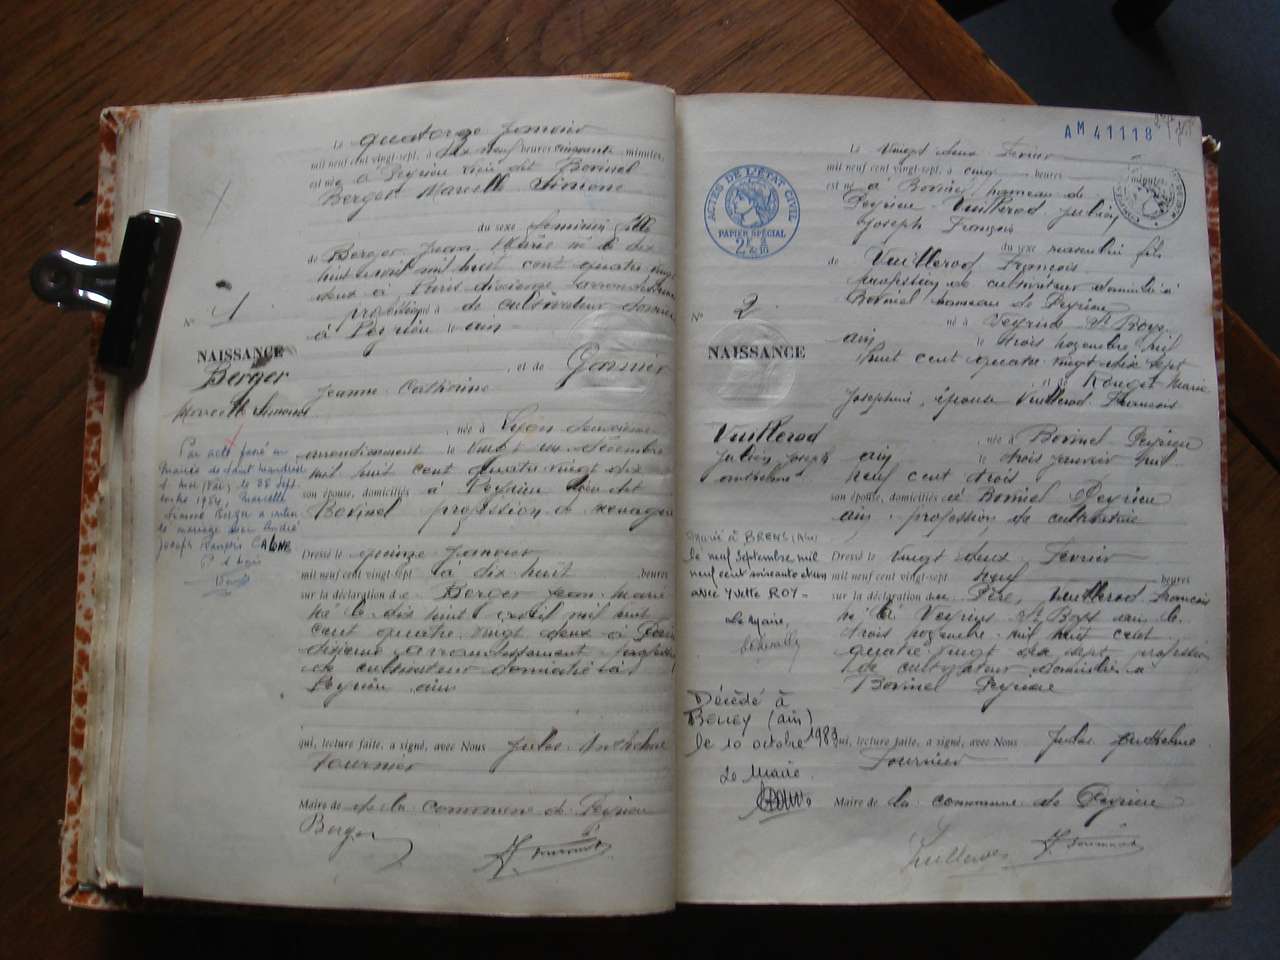 Le quatorze Janvier
mil neuf cent vingt-sept, à dix neuf heures cinquante minutes,
est née à Peyrieu lieu dit Borinel
Berger Marcelle Simone
du sexe féminin fille
de Berger Jean Marie né le dix
huit avril mil huit cent quatre vingt
deux à Paris dixième arrondissement
profession de cultivateur domicilié
à Peyrieu ain
N° 1
NAISSANCE
Berger
Marcelle Simone
et de Garnier
Jeanne Catherine
née à Lyon deuxième
arrondissement le vingt un décembre
mil huit cent quatre vingt dix
son épouse, domiciliés à Peyrieu lieu dit
Borinel profession de ménagère
Par acte passé en
Mairie de Saint Mandrier
s mer (Var) le 28 Sept
1984, Marcelle
Simone Berger a
mariage avec André
Joseph François CALONE
Dressé le quinze Janvier
mil neuf cent vingt-sept à dix huit heures
sur la déclaration de Berger Jean Marie
né le dix huit avril mil huit
cent quatre vingt deux à Paris
dixième arrondissement profession
de cultivateur domicilié à
Peyrieu ain
qui, lecture faite, a signé, avec Nous Jules Anthelme
Fournier
Maire de de la commune de Peyrieu
Berger
J. Fournier
AM 41118
ACTES DE L'ÉTAT CIVIL
PAPIER SPÉCIAL
Le Vingt deux Février
mil neuf cent vingt-sept, à cinq heures minutes
est né à Borinel hameau de
Peyrieu Vuillerod Julien
Joseph François
du sexe masculin fils
de Vuillerod François
profession de cultivateur domicilié à
Borinel hameau de Peyrieu
N° 2
NAISSANCE
né à Veyrins
ain le trois novembre mil
huit cent quatre vingt dix sept
et de Rouget Marie
Josephine, épouse Vuillerod François
Vuillerod
Julien Joseph
anthelme
née à Borinel Peyrieu
ain le trois janvier mil
neuf cent trois
son épouse, domiciliés à Borinel Peyrieu
ain profession de cultivatrice
Marié à BRENS (Ain)
le neuf Septembre mil
neuf cent soixante et un
avec Yvette ROY-
Le Maire,
Dressé le vingt deux Février
mil neuf cent vingt-sept neuf heures
sur la déclaration du Père, Vuillerod François
né à Veyrins ain le
trois novembre mil huit cent
quatre vingt dix sept profession
de cultivateur domicilié à
Borinel Peyrieu
Décédé à
BELLEY (ain)
le 10 octobre 1983
Le Maire
qui, lecture faite, a signé, avec Nous Jules Anthelme
Fournier
Maire de la commune de Peyrieu
Vuillerod
J. Fournier